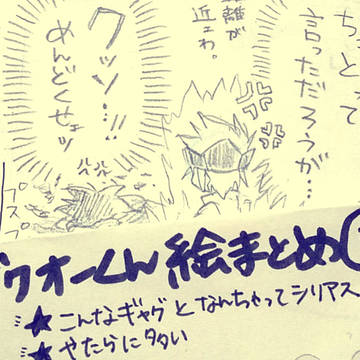 言っただろうが…
離が
近ェわ。
クッソ…!!
めんどくせェッ
プスプス
ウオーくん絵まとめ(
★こんなギャグとなんちゃってシリアス
★やたらに多い